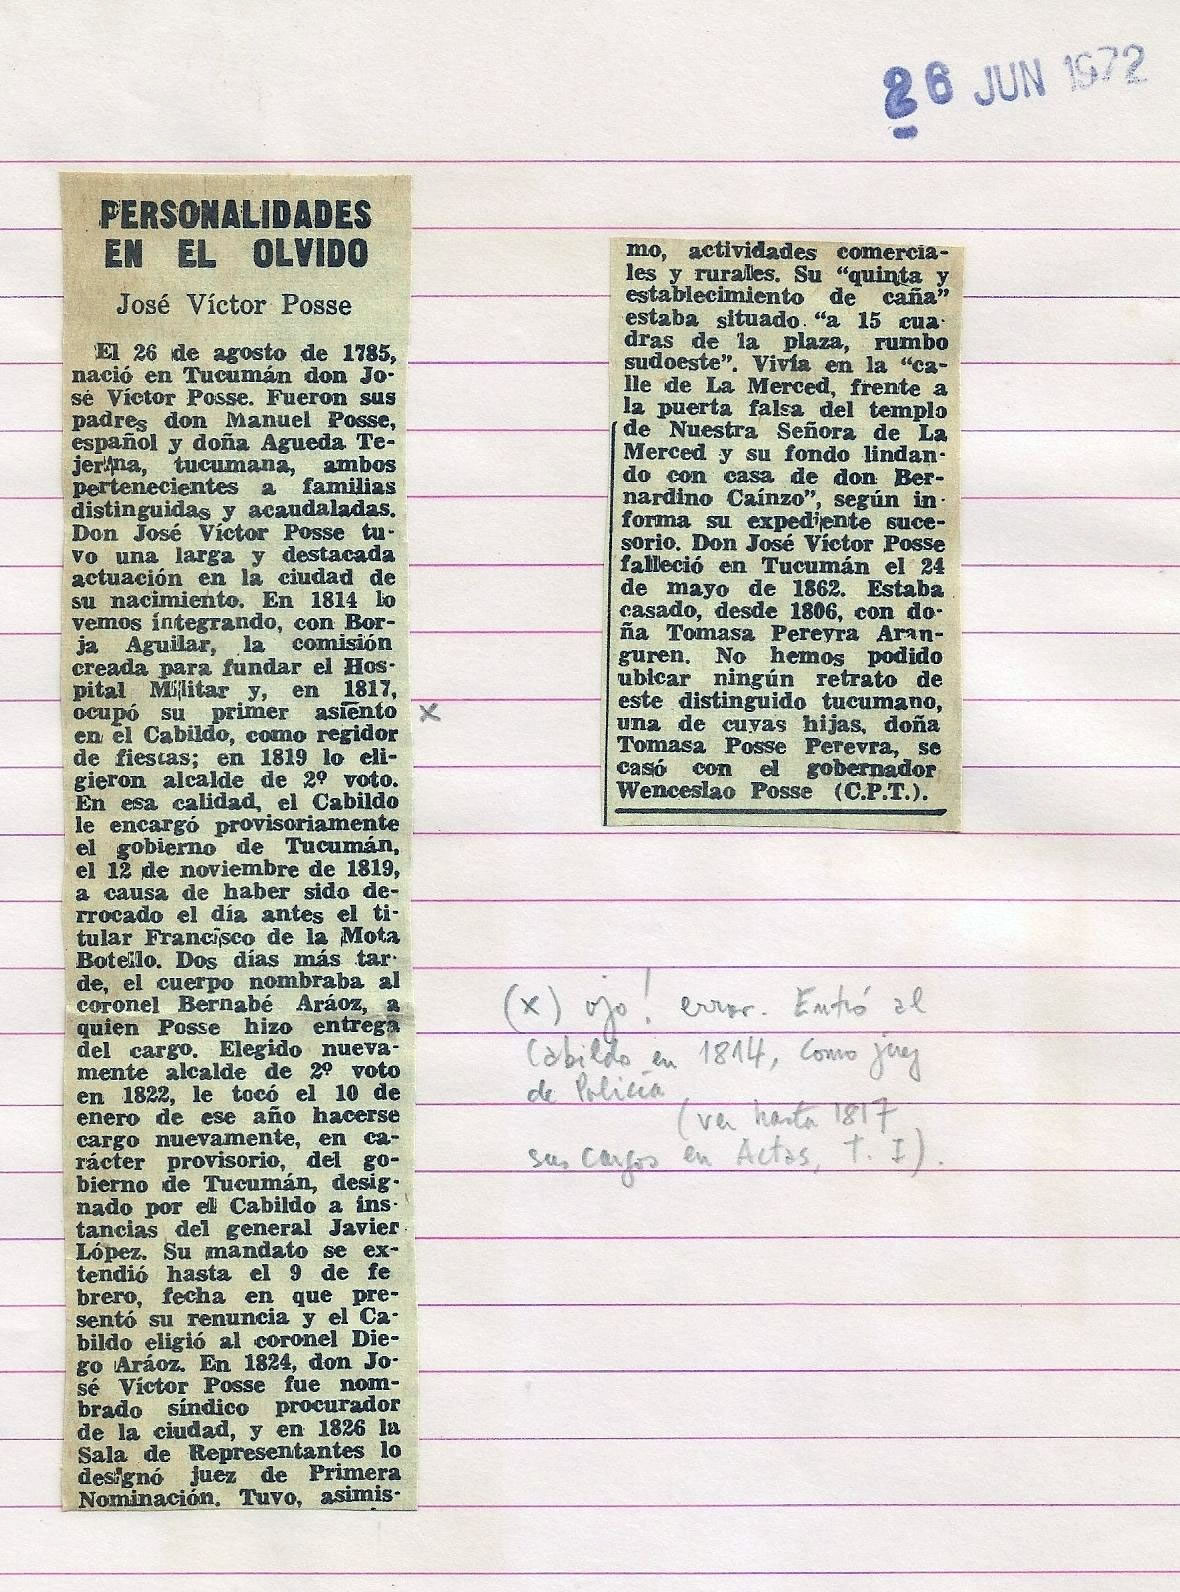 26 JUN 1972
PERSONALIDADES
EN EL OLVIDO
José Víctor Posse
El 26 de agosto de 1785,
nació en Tucumán don Jo-
sé Víctor Posse. Fueron sus
padres don Manuel Posse,
español y doña Agueda Te-
jerina, tucumana, ambos
pertenecientes a familias
distinguidas y acaudaladas.
Don José Víctor Posse tu-
vo una larga y destacada
actuación en la ciudad de
su nacimiento. En 1814 lo
vemos integrando, con Bor-
ja Aguilar, la comisión
creada para fundar el Hos-
pital Militar y, en 1817,
ocupó su primer asiento x
en el Cabildo, como regidor
de fiestas; en 1819 lo eli-
gieron alcalde de 2º voto.
En esa calidad, el Cabildo
le encargó provisoriamente
el gobierno de Tucumán,
el 12 de noviembre de 1819,
a causa de haber sido de-
rrocado el día antes el ti-
tular Francisco de la Mota
Botello. Dos días más tar-
de, el cuerpo nombraba al
coronel Bernabé Aráoz, a
quien Posse hizo entrega
del cargo. Elegido nueva-
mente alcalde de 2º voto
en 1822, le tocó el 10 de
enero de ese año hacerse
cargo nuevamente, en ca-
rácter provisorio, del go-
bierno de Tucumán, desig-
nado por el Cabildo a ins-
tancias del general Javier
López. Su mandato se ex-
tendió hasta el 9 de fe
brero, fecha en que pre-
sentó su renuncia y el Ca-
bildo eligió al coronel Die-
go Aráoz. En 1824, don Jo-
sé Víctor Posse fue nom-
brado síndico procurador
de la ciudad, y en 1826 la
Sala de Representantes lo
designó juez de Primera
Nominación. Tuvo, asimis-
mo, actividades comercia-
les y rurales. Su "quinta y
establecimiento de caña"
estaba situado "a 15 cua-
dras de la plaza, rumbo
sudoeste". Vivía en la "ca-
lle de La Merced, frente a
la puerta falsa del templo
de Nuestra Señora de La
Merced y su fondo lindan-
do con casa de don Ber-
nardino Caínzo", según in-
forma su expediente suce-
sorio. Don José Víctor Posse
falleció en Tucumán el 24
de mayo de 1862. Estaba
casado, desde 1806, con do-
ña Tomasa Pereyra Aran-
guren. No hemos podido
ubicar ningún retrato de
este distinguido tucumano,
una de cuyas hijas, doña
Tomasa Posse Pereyra, se
casó con el gobernador
Wenceslao Posse (C.P.T.).
(x) ojo! error. Entró al
Cabildo en 1814, como juez
de Policía
(ver hasta 1817
sus cargos en Actas, T. I).